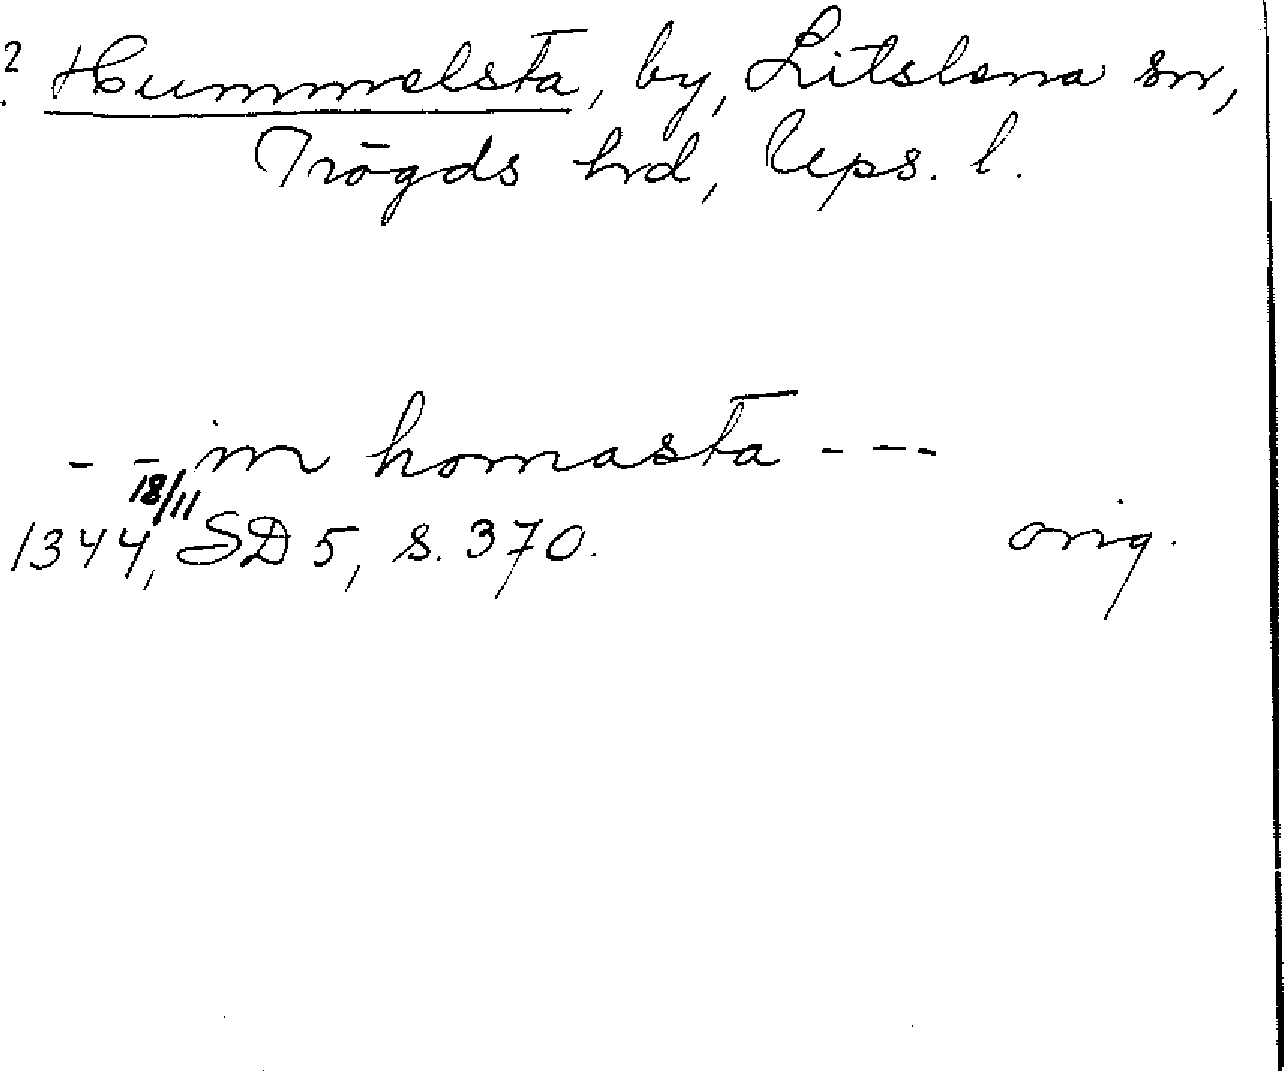 ? Hummelsta, by, Litslena sn,
Trögds hrd, Ups. l.
- - in homasta - - -
18/11
1344, SD 5, s. 370. orig.